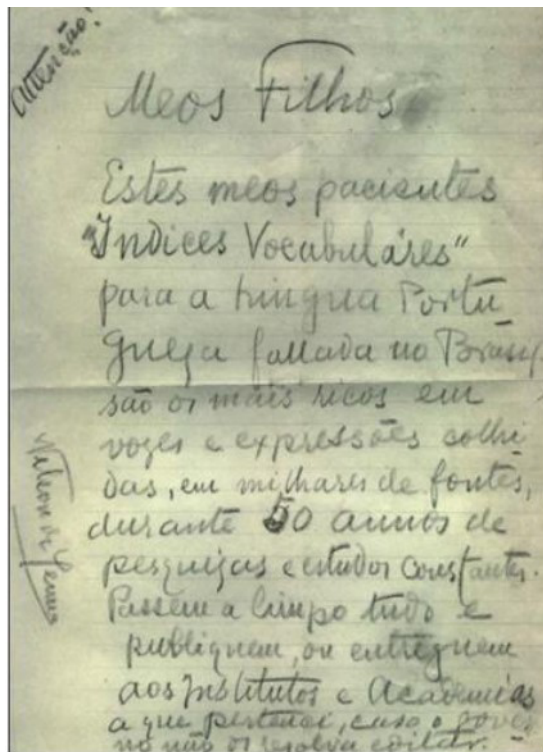 Attenção!
Meos Filhos
Estes meos pacientes
"Indices Vocabuláres"
para a Lingua Portu
gueza fallada no Brasil
são os mais ricos em
vozes e expressões colhi
das, em milhares de fontes,
durante 50 annos de
pesquizas e estudos constantes.
Passem a limpo tudo e
publiquem, ou entreguem
aos Institutos e Academias
a que pertenci, caso o gover
no não os resolva editar
Nelson de Senna